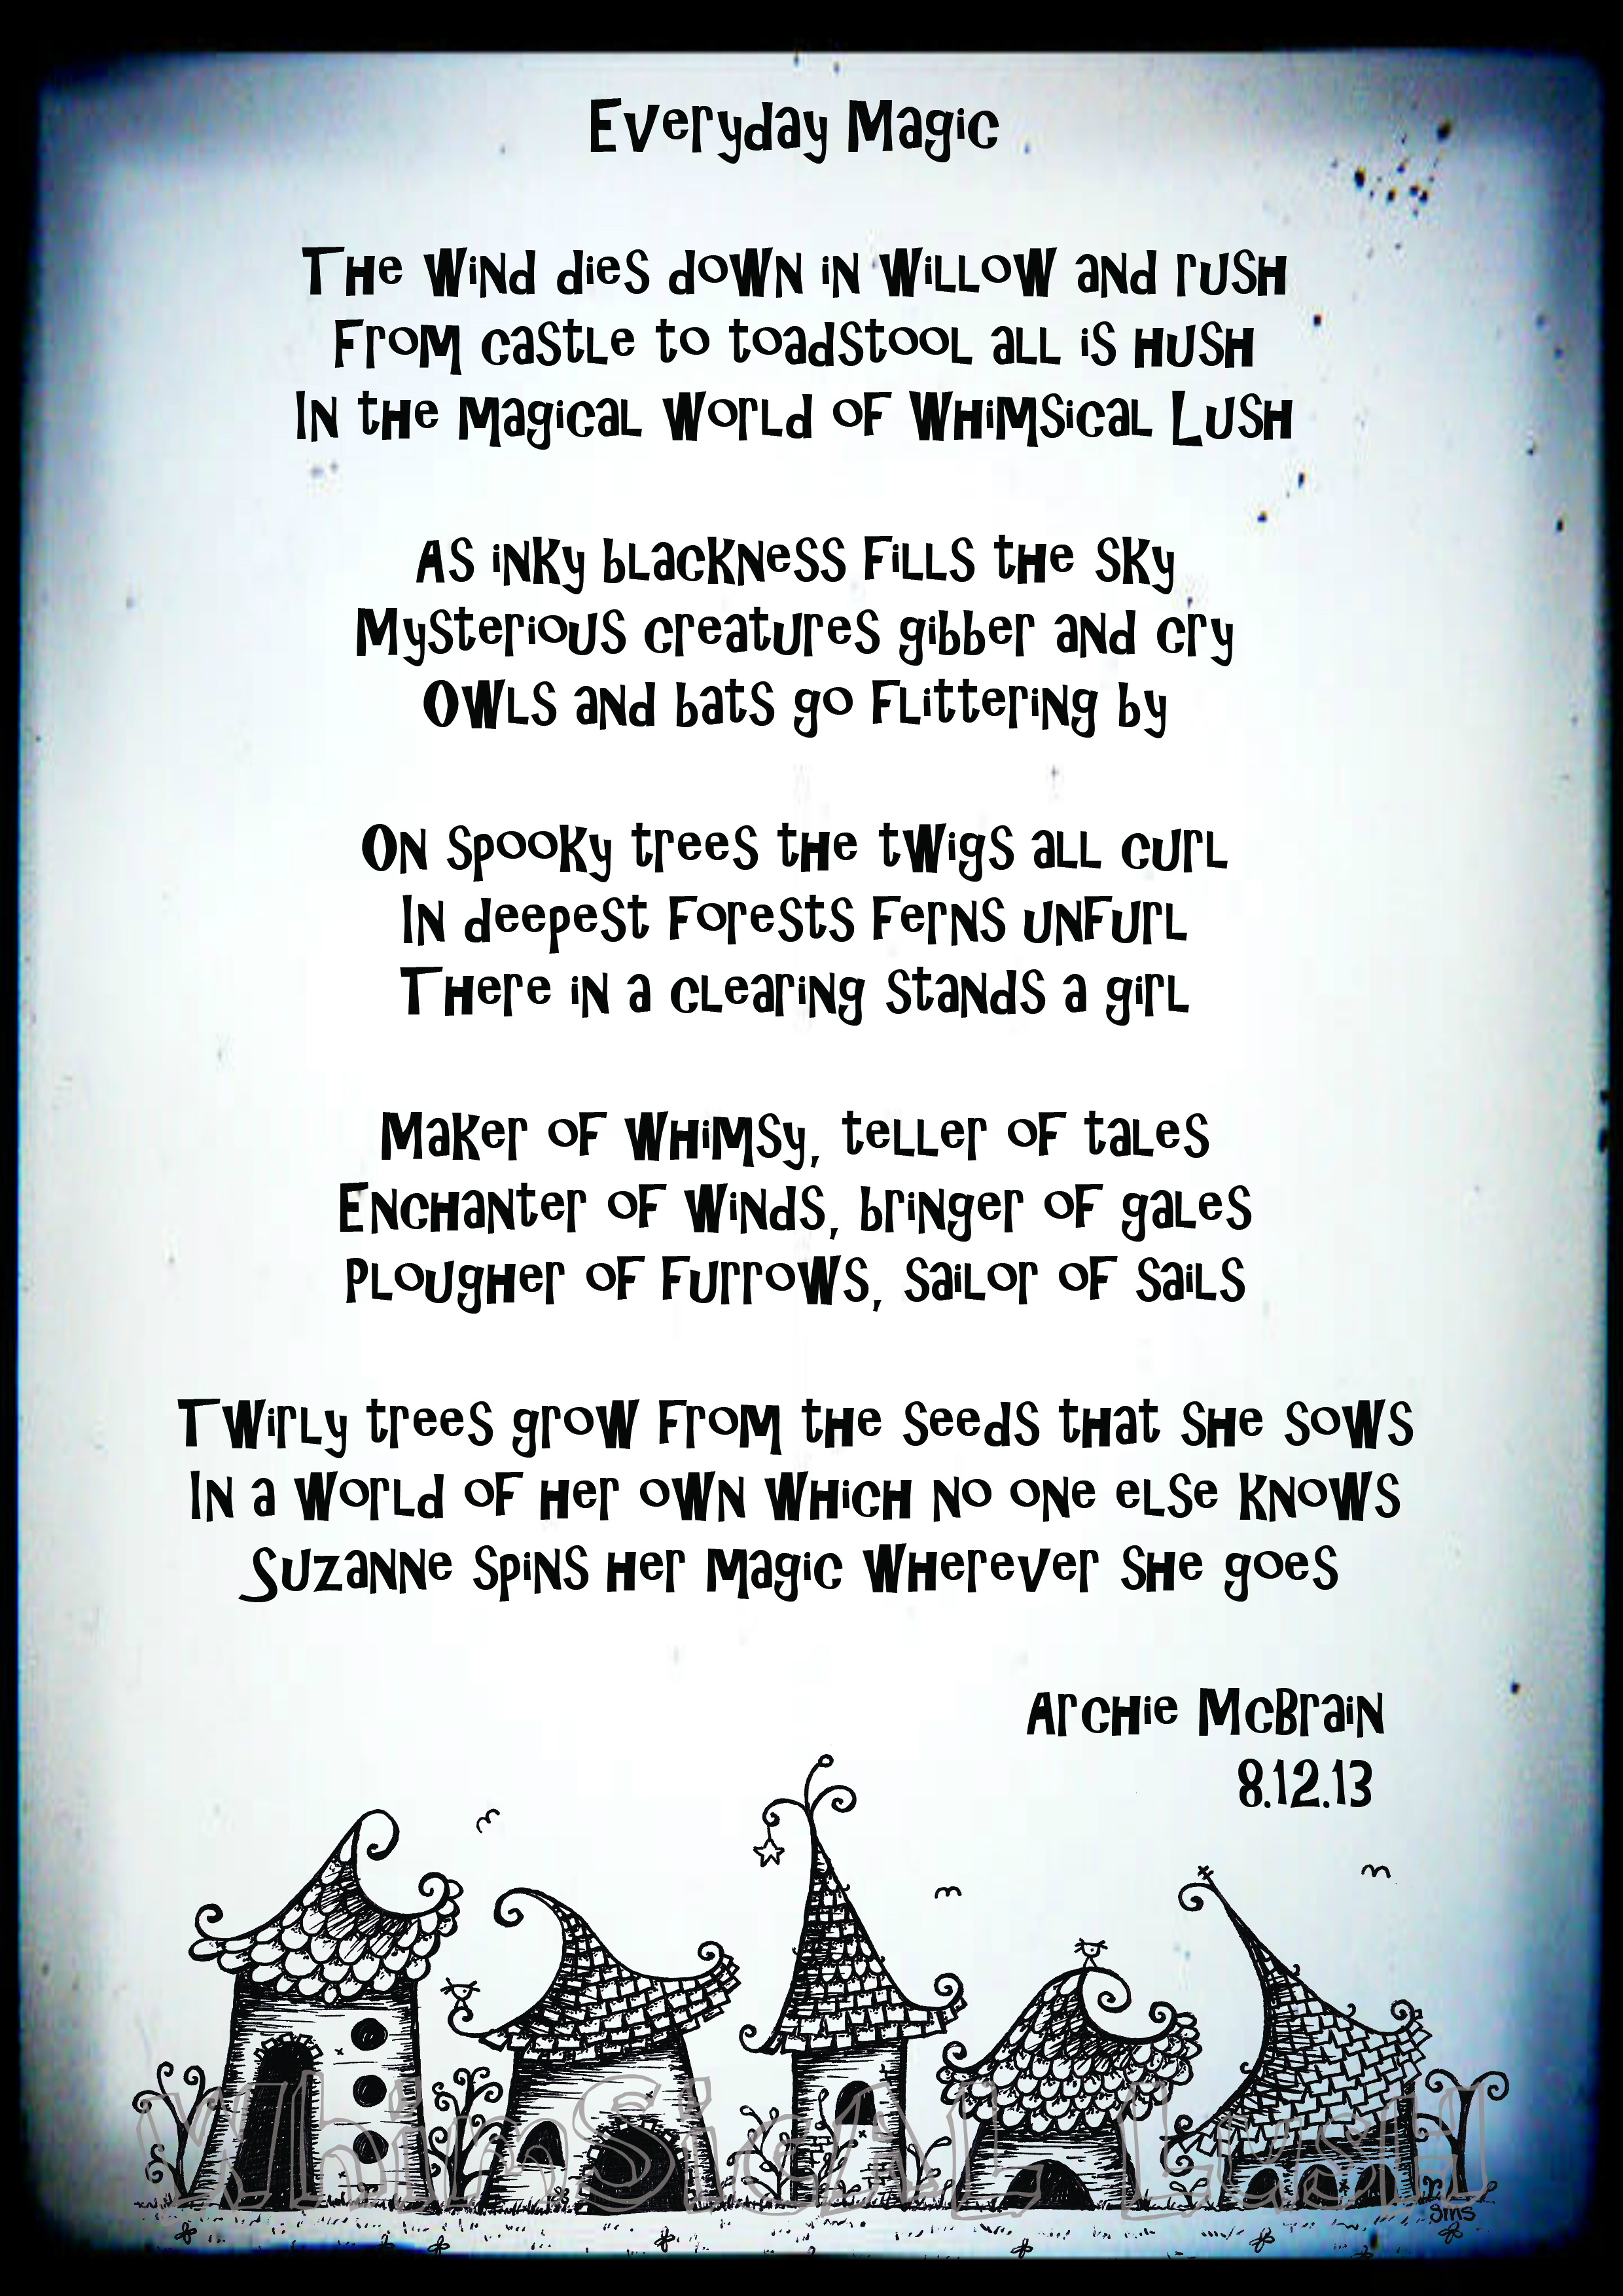 Everyday Magic
The wind dies down in willow and rush
From castle to toadstool all is hush
In the magical world of Whimsical Lush
As inky blackness fills the sky
Mysterious creatures gibber and cry
Owls and bats go flittering by
On spooky trees the twigs all curl
In deepest forests ferns unfurl
There in a clearing stands a girl
Maker of whimsy, teller of tales
Enchanter of winds, bringer of gales
Plougher of furrows, sailor of sails
Twirly trees grow from the seeds that she sows
In a world of her own which no one else knows
Suzanne spins her magic wherever she goes
Archie McBrain
8.12.13
WhimSicAL LusH
sms